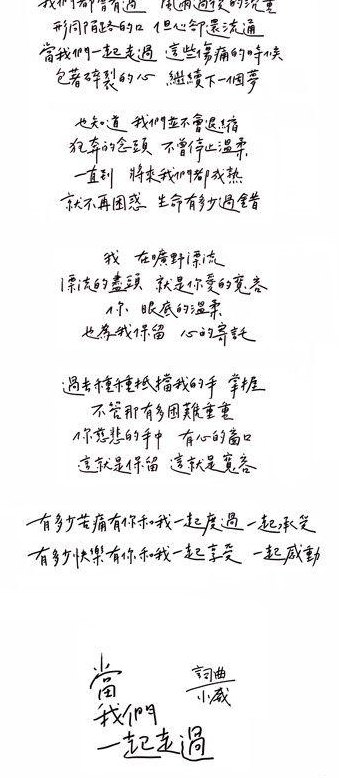 我們都曾有過 風雨過後的沉重
形同陌路的口 但心卻還流通
當我們一起走過 這些傷痛的時候
包著碎裂的心 繼續下一個夢
也知道 我們並不會退縮
狂奔的念頭 不曾停止溫柔
一直到 將來我們都成熟
就不再困惑 生命有多少過錯
我 在曠野漂流
漂流的盡頭 就是你愛的寬容
你 眼底的溫柔
也為我保留 心的寄託
過去種種抵擋我的手 掌握
不管那有多困難重重
你慈悲的手中 有心的窗口
這就是保留 這就是寬容
有多少苦痛有你和我一起度過 一起承受
有多少快樂有你和我一起享受 一起感動
當
我們
一起走過
詞曲
小威